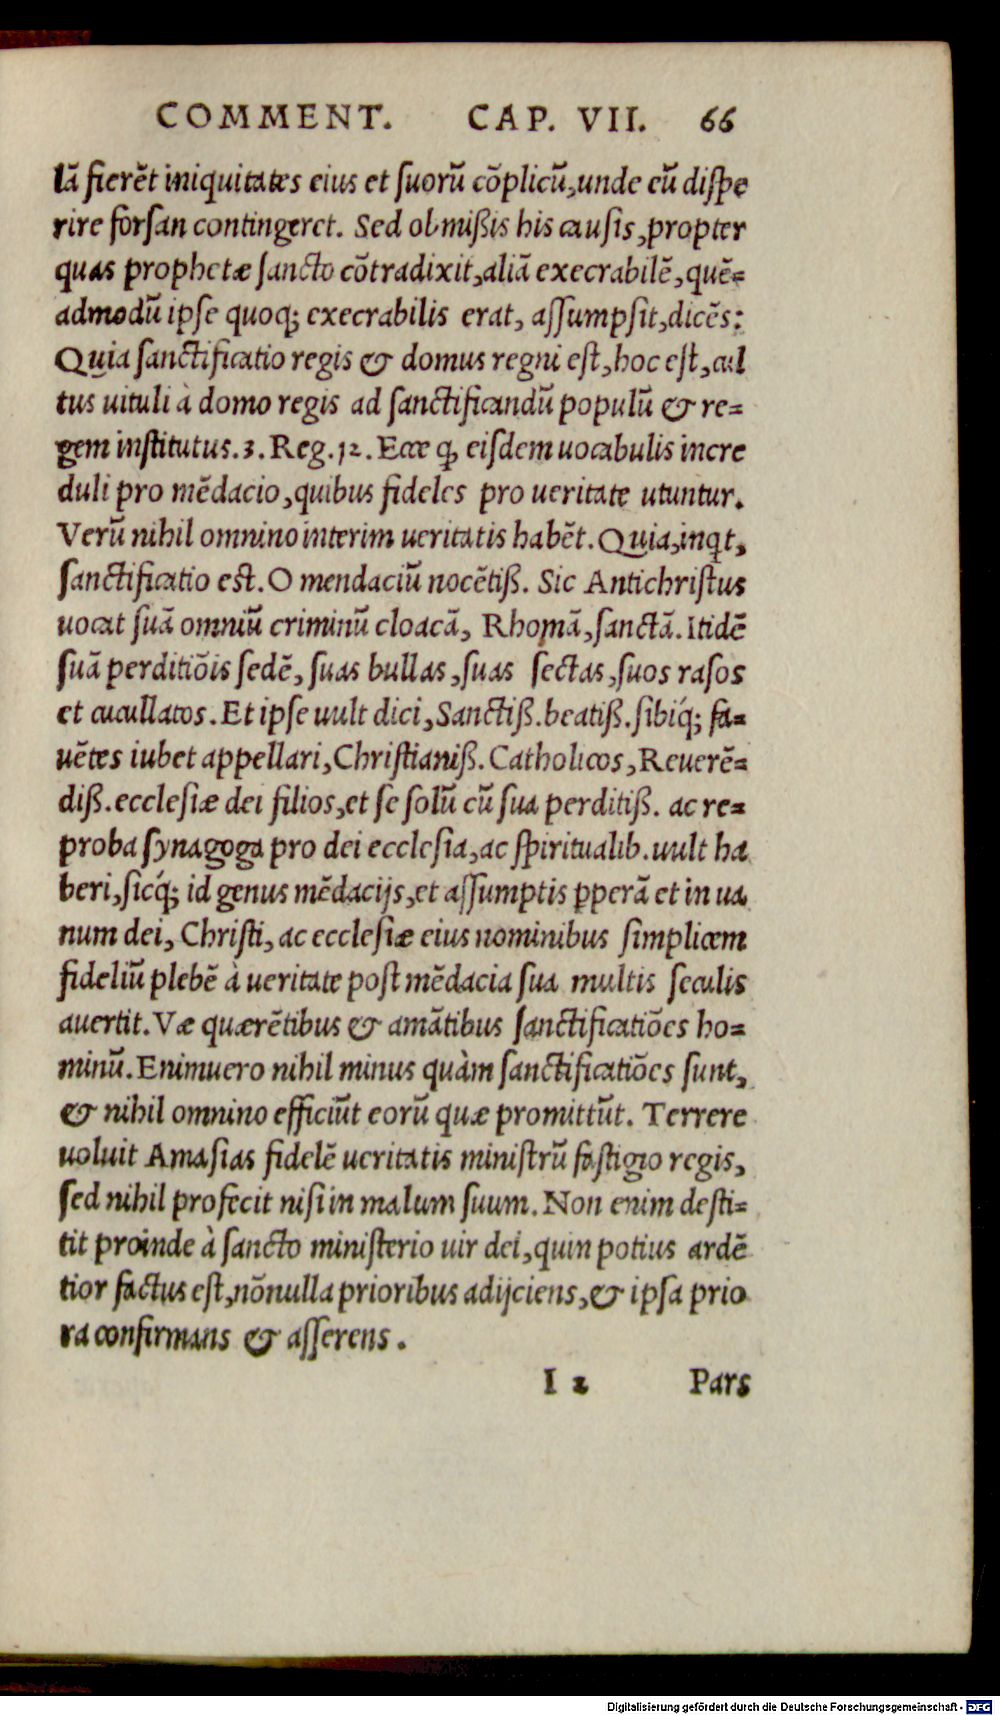 COMMENT. CAP. VII. 66
lā fierēt iniquitates eius et suorū cōplicū,unde eū dispe
rire forsan contingeret. Sed obmißis his causis,propter
quas prophetæ sancto cōtradixit,aliā execrabilē,quē=
admodū ipse quoq; execrabilis erat, assumpsit,dicēs:
Quia sanctificatio regis & domus regni est,hoc est,cul
tus uituli à domo regis ad sanctificandū populū & re=
gem institutus.3.Reg.12.Ecce q̨ eisdem uocabulis incre
duli pro mēdacio,quibus fideles pro ueritate utuntur.
Verū nihil omnino interim ueritatis habēt.Quia,inqt,
sanctificatio est.O mendaciū nocētiß. Sic Antichristus
uocat suā omniū criminū cloacā, Rhomā,sanctā.Itidē
suā perditiōis sedē, suas bullas,suas sectas,suos rasos
et cucullatos.Et ipse uult dici,Sanctiß.beatiß.sibiq́; fa=
uētes iubet appellari,Christianiß.Catholicos,Reuerē=
diß.ecclesiæ dei filios,et se solū cū sua perditiß. ac re=
proba synagoga pro dei ecclesia,ac spiritualib.uult ha
beri,sicq́; id genus mēdacijs,et assumptis ꝑperā et in ua
num dei, Christi, ac ecclesiæ eius nominibus simplicem
fideliū plebē à ueritate post mēdacia sua multis seculis
auertit.Væ quærētibus & amātibus sanctificatiōes ho=
minū.Enimuero nihil minus quàm sanctificatiōes sunt,
& nihil omnino efficiūt eorū quæ promittūt. Terrere
uoluit Amasias fidelē ueritatis ministrū fastigio regis,
sed nihil profecit nisi in malum suum. Non enim desti=
tit proinde à sancto ministerio uir dei,quin potius ardē
tior factus est,nōnulla prioribus adijciens,& ipsa prio
ra confirmans & asserens.
I 2 Pars
Digitalisierung gefördert durch die Deutsche Forschungsgemeinschaft - DFG